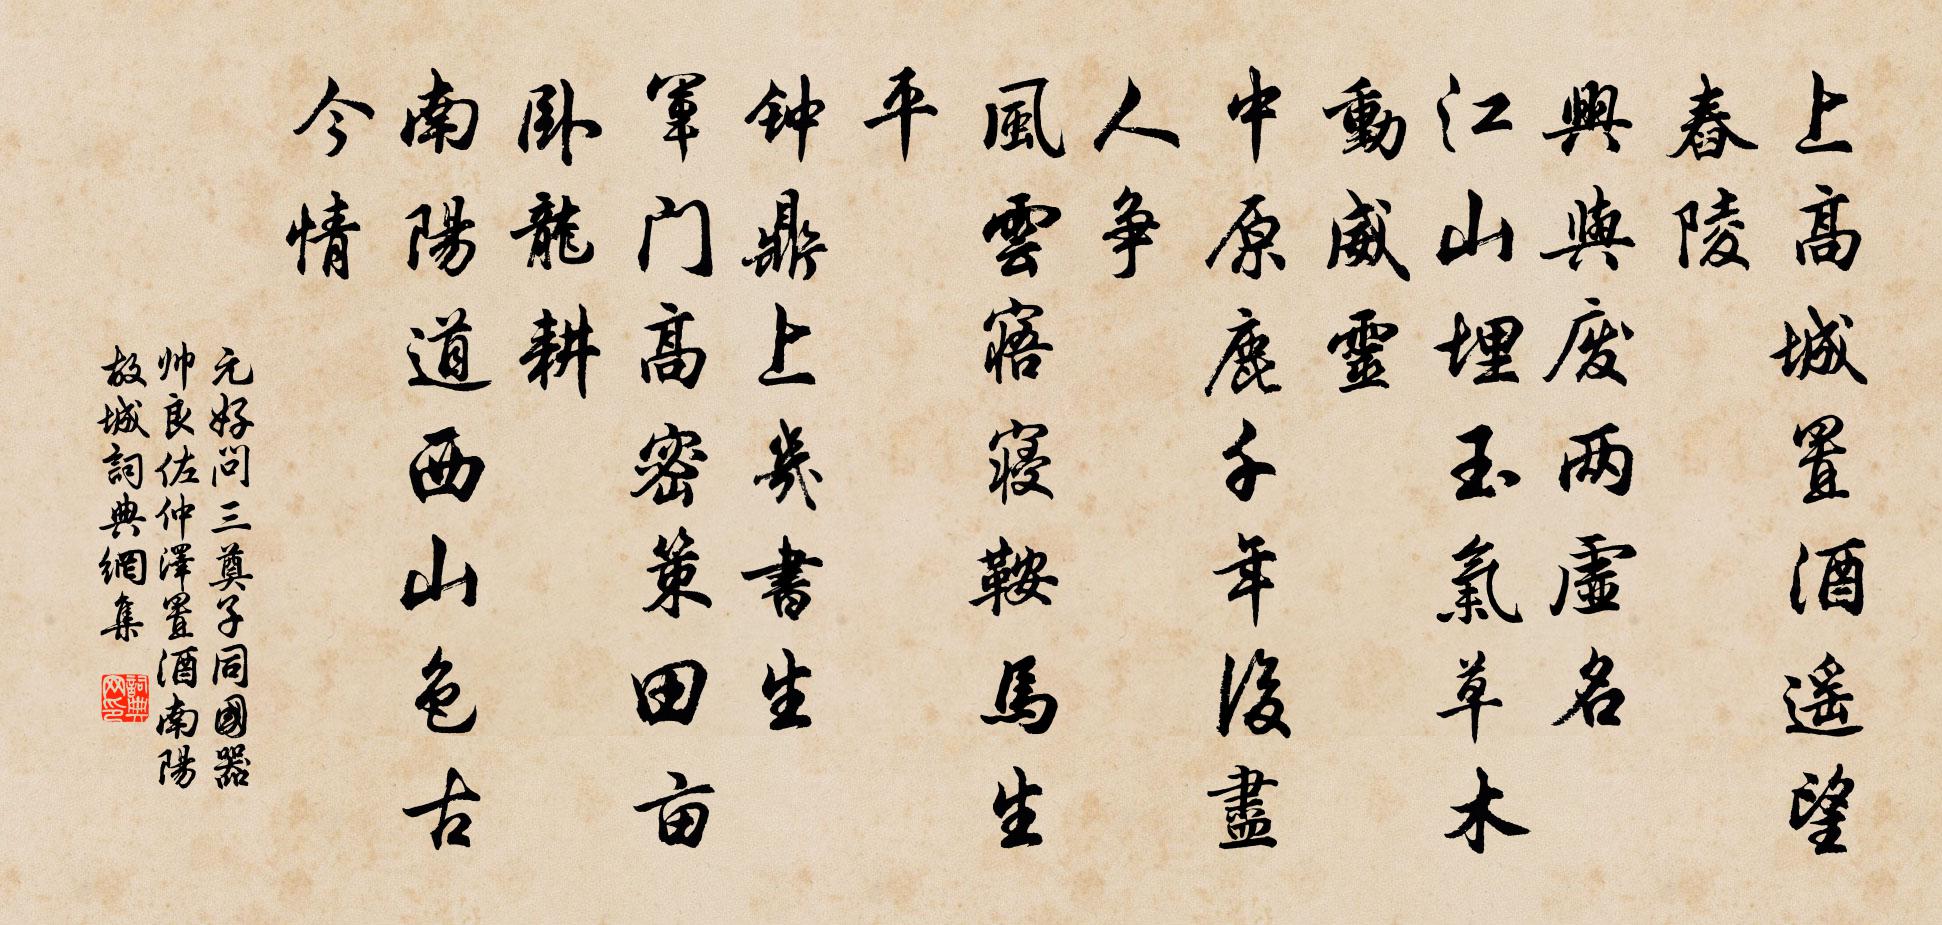 上高城置酒遥望
舂陵
興與废两虛名
江山埋玉氣草木
動威靈
中原鹿千年後盡
人争
風雲寤寢鞍馬生
平
钟鼎上幾書生
軍门高密策田亩
卧龍耕
南陽道西山色古
今情
元好问三奠子同國器
帅良佐仲澤置酒南陽
故城詞典網集
詞典网印